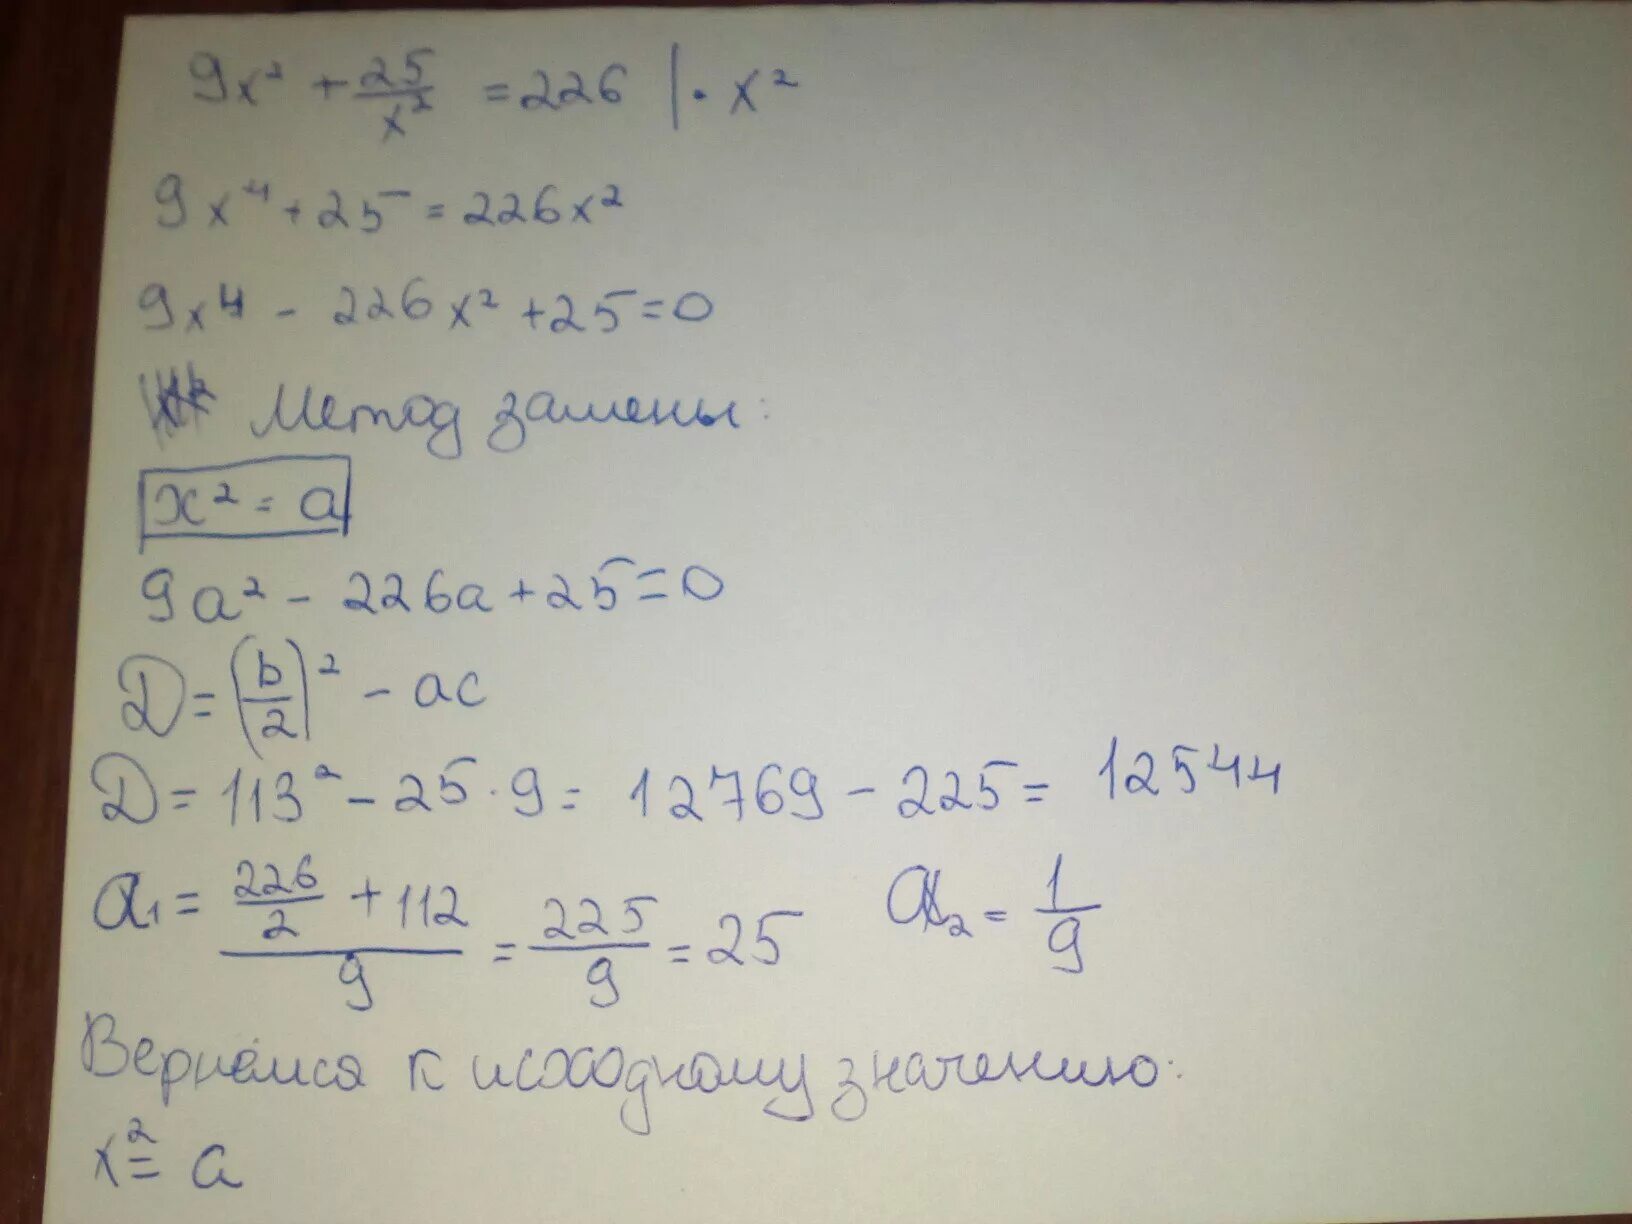 9x² + 25/x² = 226 | · x²
9x⁴ + 25 = 226x²
9x⁴ - 226x² + 25 = 0
Метод замены:
x² = a
9a² - 226a + 25 = 0
D = (b/2)² - ac
D = 113² - 25 · 9 = 12769 - 225 = 12544
a₁ = (226/2 + 112)/9 = 225/9 = 25 a₂ = 1/9
Вернёмся к исходному значению:
x² = a